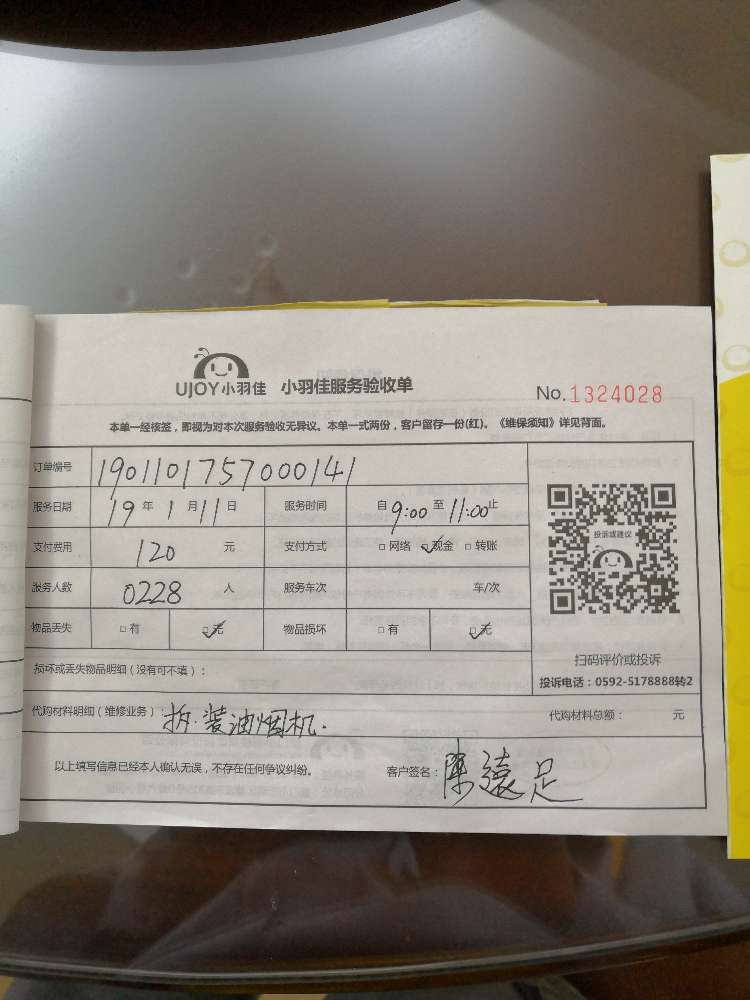 UJOY小羽佳 小羽佳服务验收单 No.1324028
本单一经核签，即视为对本次服务验收无异议。本单一式两份，客户留存一份(红)。《维保须知》详见背面。
订单编号 1901101757000141
服务日期 19年1月11日 服务时间 自9:00至11:00止
支付费用 120 元 支付方式 □网络 ☑现金 □转账
服务人数 0228 人 服务车次 车/次
物品丢失 □有 ☑无 物品损坏 □有 ☑无
投诉或建议
扫码评价或投诉
投诉电话：0592-5178888转2
损坏或丢失物品明细（没有可不填）：
代购材料明细（维修业务）：拆.装油烟机. 代购材料总额： 元
以上填写信息已经本人确认无误，不存在任何争议纠纷。 客户签名：陈遠足